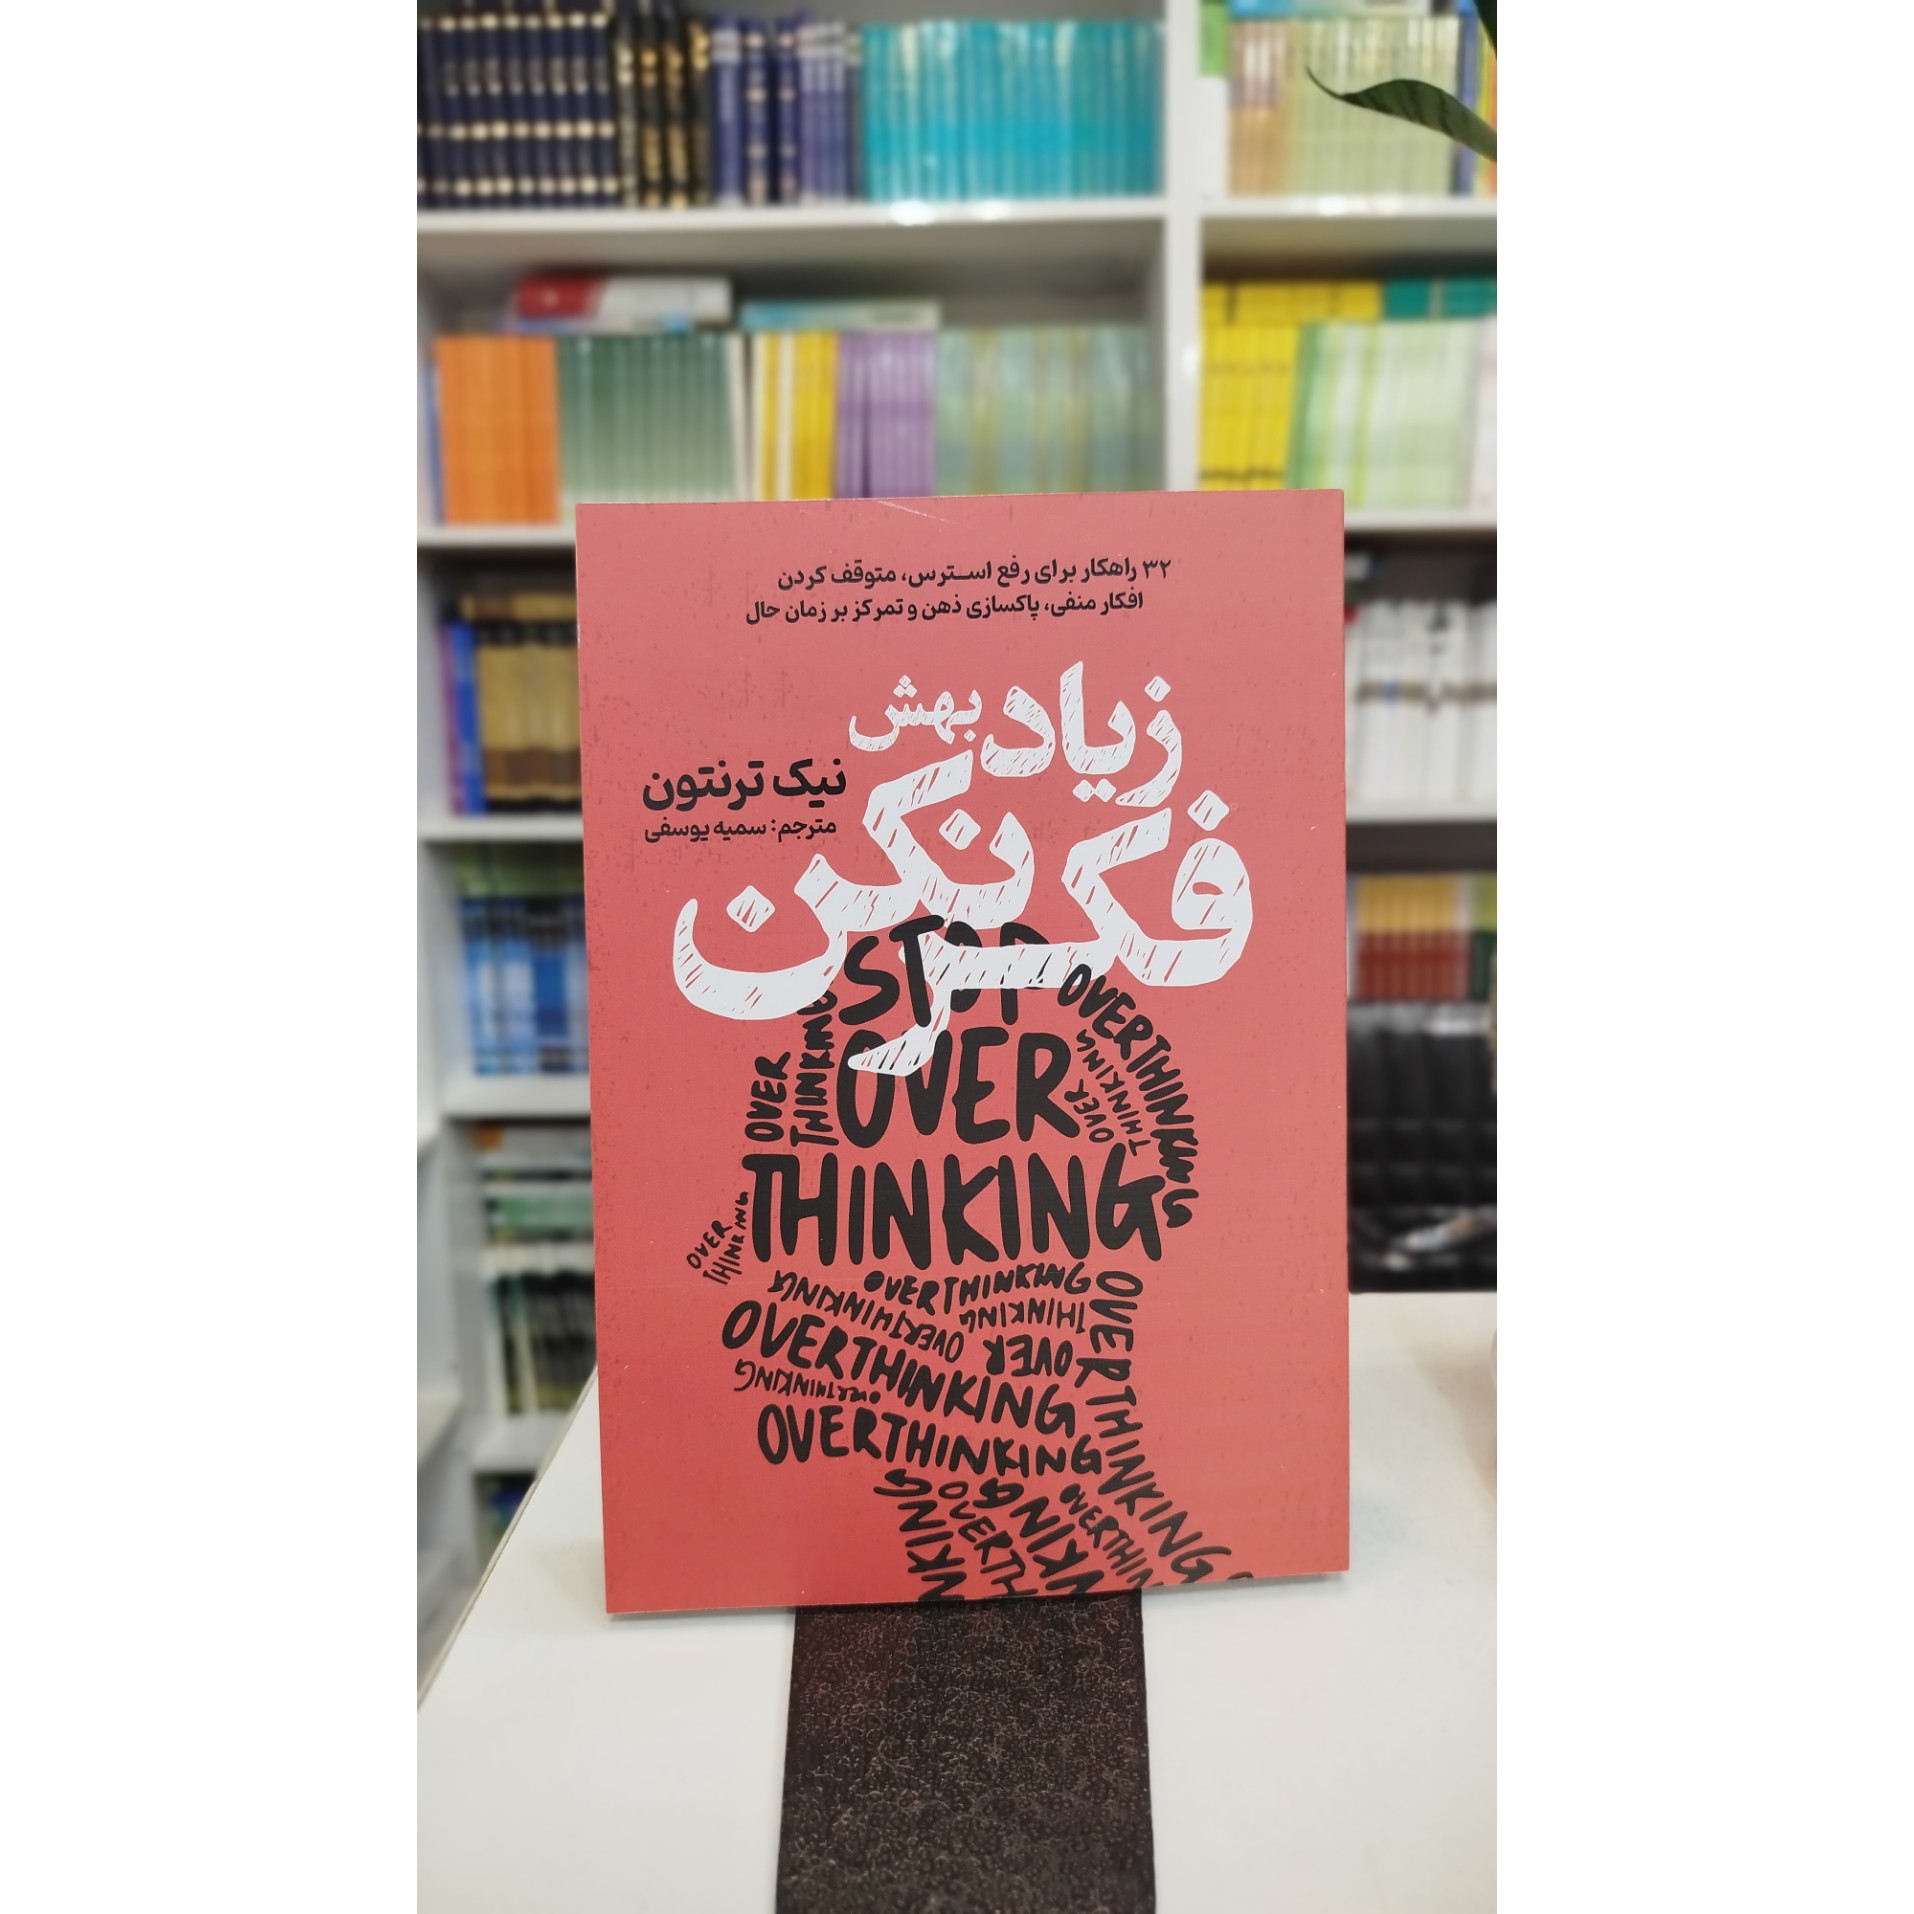 ۳۲ راهکار برای رفع استرس، متوقف کردن
افکار منفی، پاکسازی ذهن و تمرکز بر زمان حال
زیاد بهش
فکر نکن
نیک ترنتون
مترجم: سمیه یوسفی
STOP
OVER
THINKING
OVERTHINKING
OVER
THINKING
OVER
THINKING
OVER
THINKING
OVERTHINKING
OVERTHINKING
THINKING
OVER
OVERTHINKING
OVERTHINKING
OVERTHINKING
OVERTHINKING
KING
OVERTH
KING
OVERTHIN